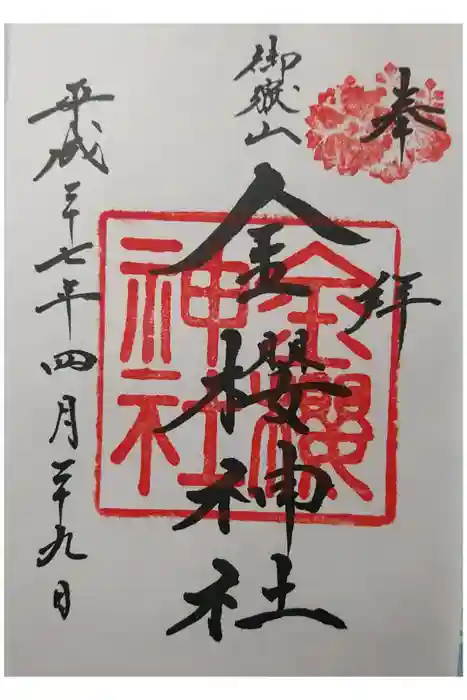 奉拝
御嶽山
金櫻神社
金櫻
神社
平成二十七年四月二十九日